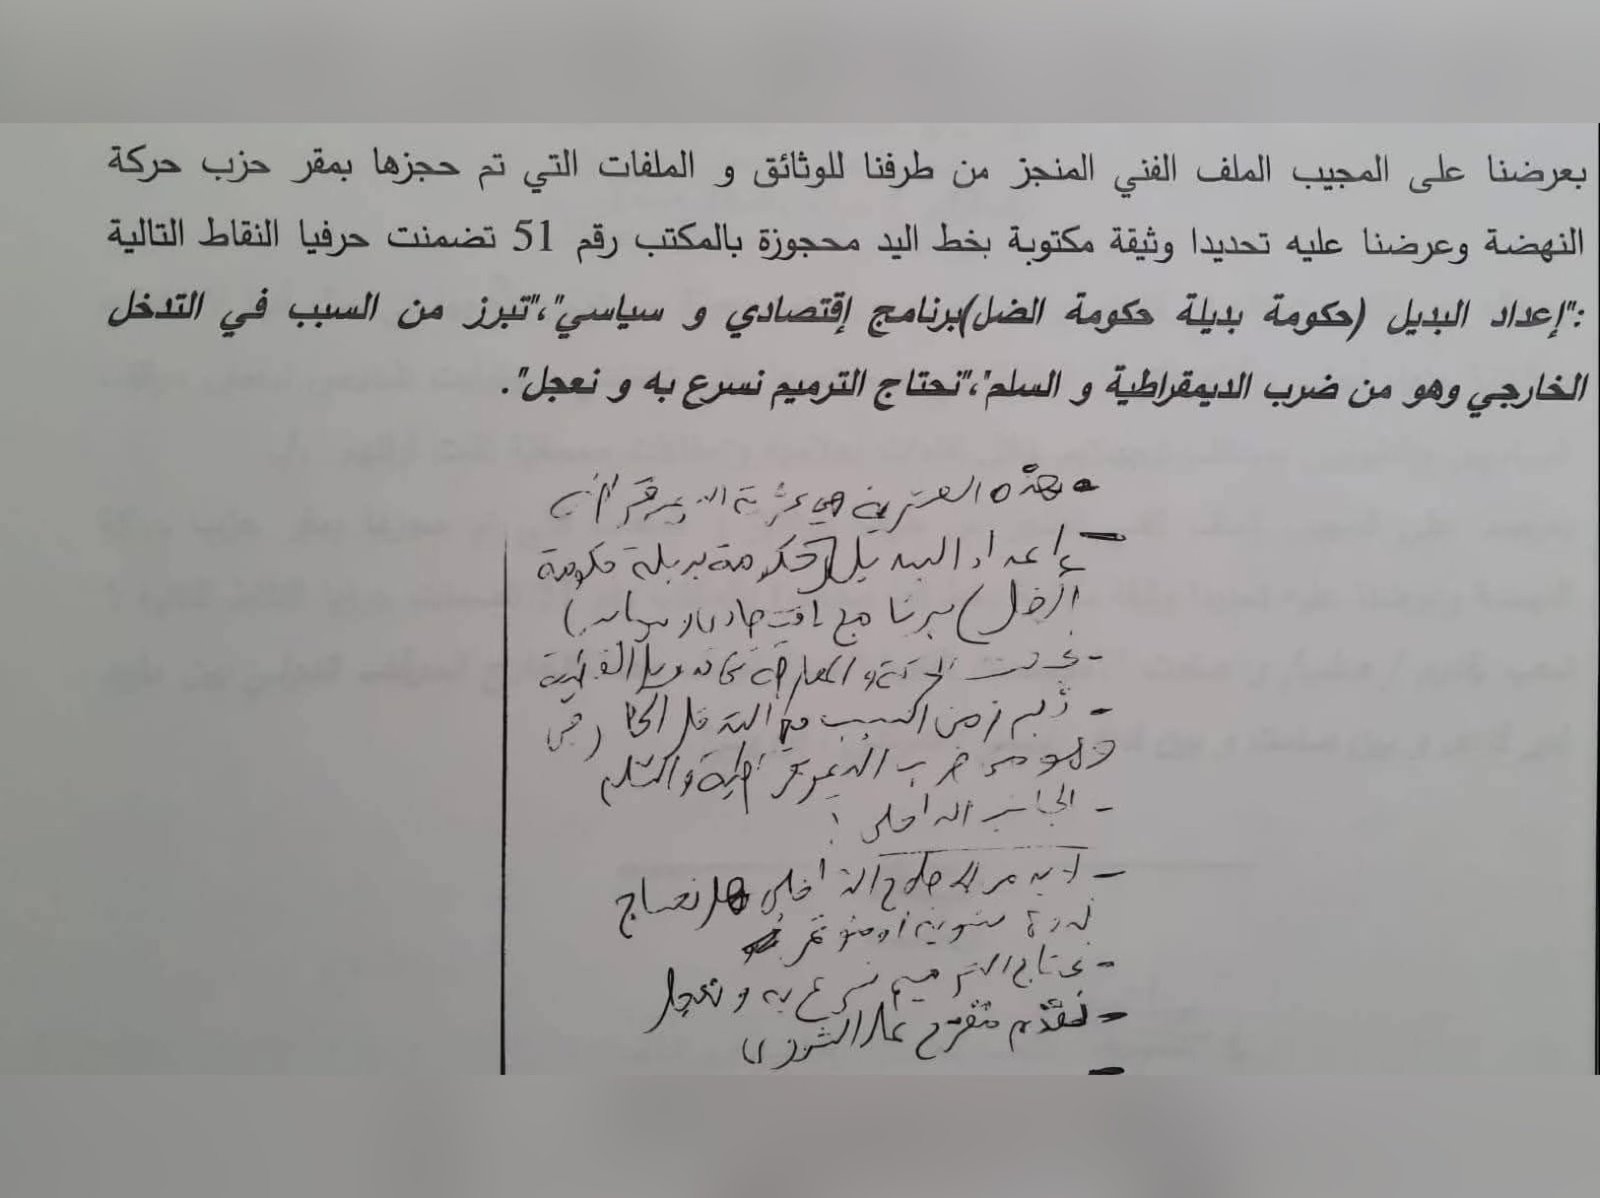 بعرضنا على المجيب الملف الفني المنجز من طرفنا للوثائق و الملفات التي تم حجزها بمقر حزب حركة
النهضة وعرضنا عليه تحديدا وثيقة مكتوبة بخط اليد محجوزة بالمكتب رقم 51 تضمنت حرفيا النقاط التالية
:"إعداد البديل (حكومة بديلة حكومة الضل)برنامج إقتصادي و سياسي"،"تبرز من السبب في التدخل
الخارجي وهو من ضرب الديمقراطية و السلم"،"نحتاج الترميم نسرع به و نعجل".
- هذه العشرية هي عشرية
- إعداد البديل (حكومة بديلة حكومة
الضل) برنامج إقتصادي
-
- تبرز من السبب في التدخل الخارجي
وهو من ضرب الديمقراطية والسلم
- الجانب الداخلي:
- لا بد من الإصلاح الداخلي هل نحتاج
ندوة سنوية او مؤتمر
- نحتاج الترميم نسرع به و نعجل
- نقدم مقترح على الشورى